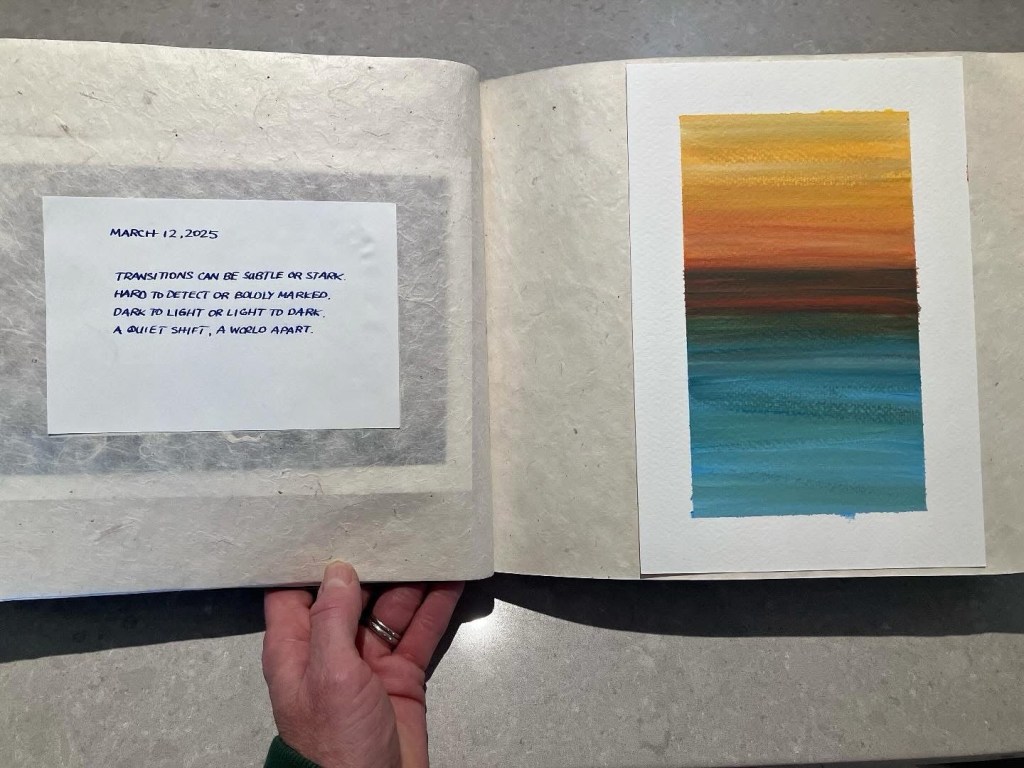 MARCH 12, 2025
TRANSITIONS CAN BE SUBTLE OR STARK.
HARD TO DETECT OR BOLDLY MARKED.
DARK TO LIGHT OR LIGHT TO DARK.
A QUIET SHIFT, A WORLD APART.